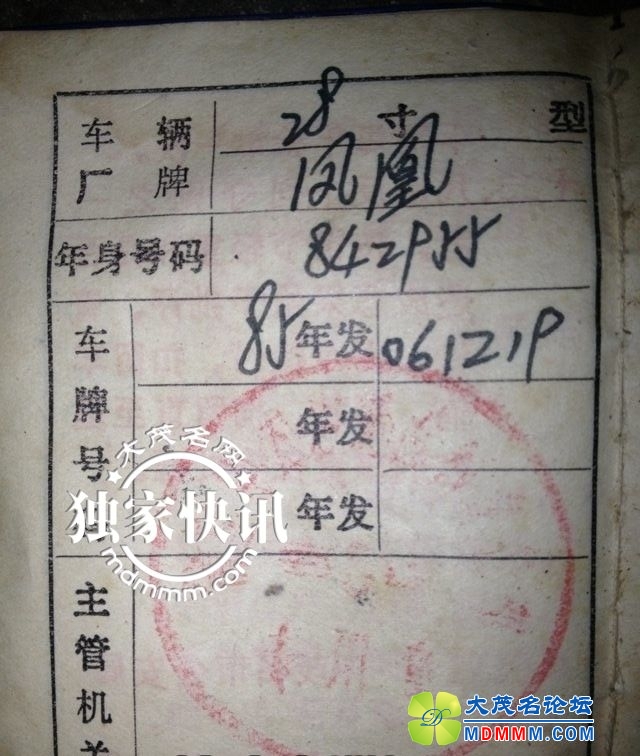 车辆 28寸 型
厂牌 凤凰
年身号码 8429555
车牌号 85年发 061219
年发
年发
大茂名网
独家快讯
mdmmm.com
主管机关
大茂名论坛
MDMMM.COM